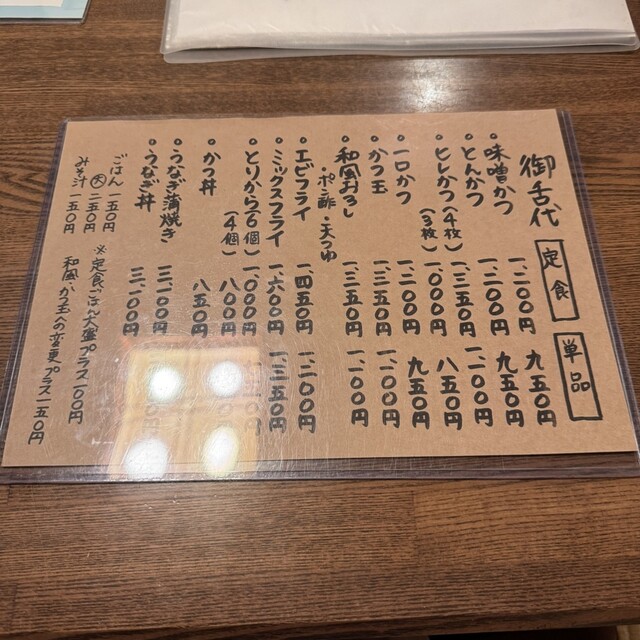 御舌代 定食 単品
・味噌かつ 一、二〇〇円 九五〇円
・とんかつ 一、二〇〇円 九五〇円
・ヒレかつ(4枚) 一、三五〇円 一、一〇〇円
(3枚) 一、〇〇〇円 八五〇円
・一口かつ 一、二〇〇円 九五〇円
・かつ玉 一、三五〇円 一、一〇〇円
・和風おろし 一、三五〇円 一、一〇〇円
ポン酢・天つゆ
・エビフライ 一、四五〇円 一、二〇〇円
・ミックスフライ 一、六〇〇円 一、三五〇円
・とりから(6個) 一、〇〇〇円
(4個) 八〇〇円
・かつ丼 八五〇円
・うなぎ蒲焼き
・うなぎ丼
ごはん 一五〇円
大
みそ汁 一五〇円
※定食、ごはん大盛プラス一〇〇円
和風、かつ玉への変更プラス一五〇円